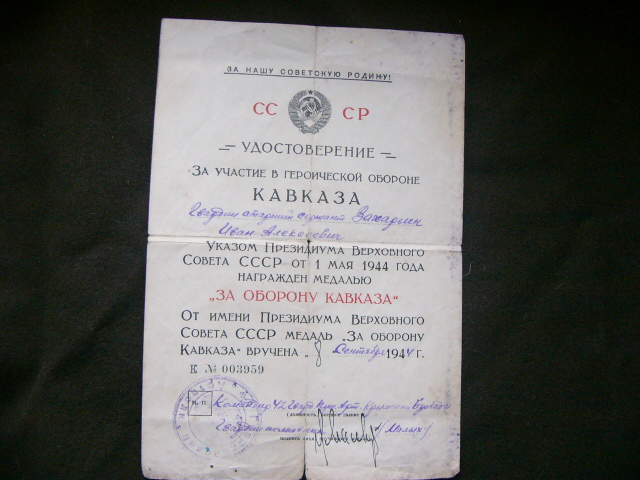 ЗА НАШУ СОВЕТСКУЮ РОДИНУ!
СС СР
УДОСТОВЕРЕНИЕ
ЗА УЧАСТИЕ В ГЕРОИЧЕСКОЙ ОБОРОНЕ
КАВКАЗА
Гвардии старший сержант Захарьин
Иван Алексеевич
УКАЗОМ ПРЕЗИДИУМА ВЕРХОВНОГО
СОВЕТА СССР ОТ 1 МАЯ 1944 ГОДА
НАГРАЖДЕН МЕДАЛЬЮ
„ЗА ОБОРОНУ КАВКАЗА“
ОТ ИМЕНИ ПРЕЗИДИУМА ВЕРХОВНОГО
СОВЕТА СССР МЕДАЛЬ „ЗА ОБОРОНУ
КАВКАЗА“ ВРУЧЕНА „8 сентября 1944 г.
Е № 003959
М. П.
Командир 42 Гвард. Арт. Бригады
Гвардии полковник /Малых/